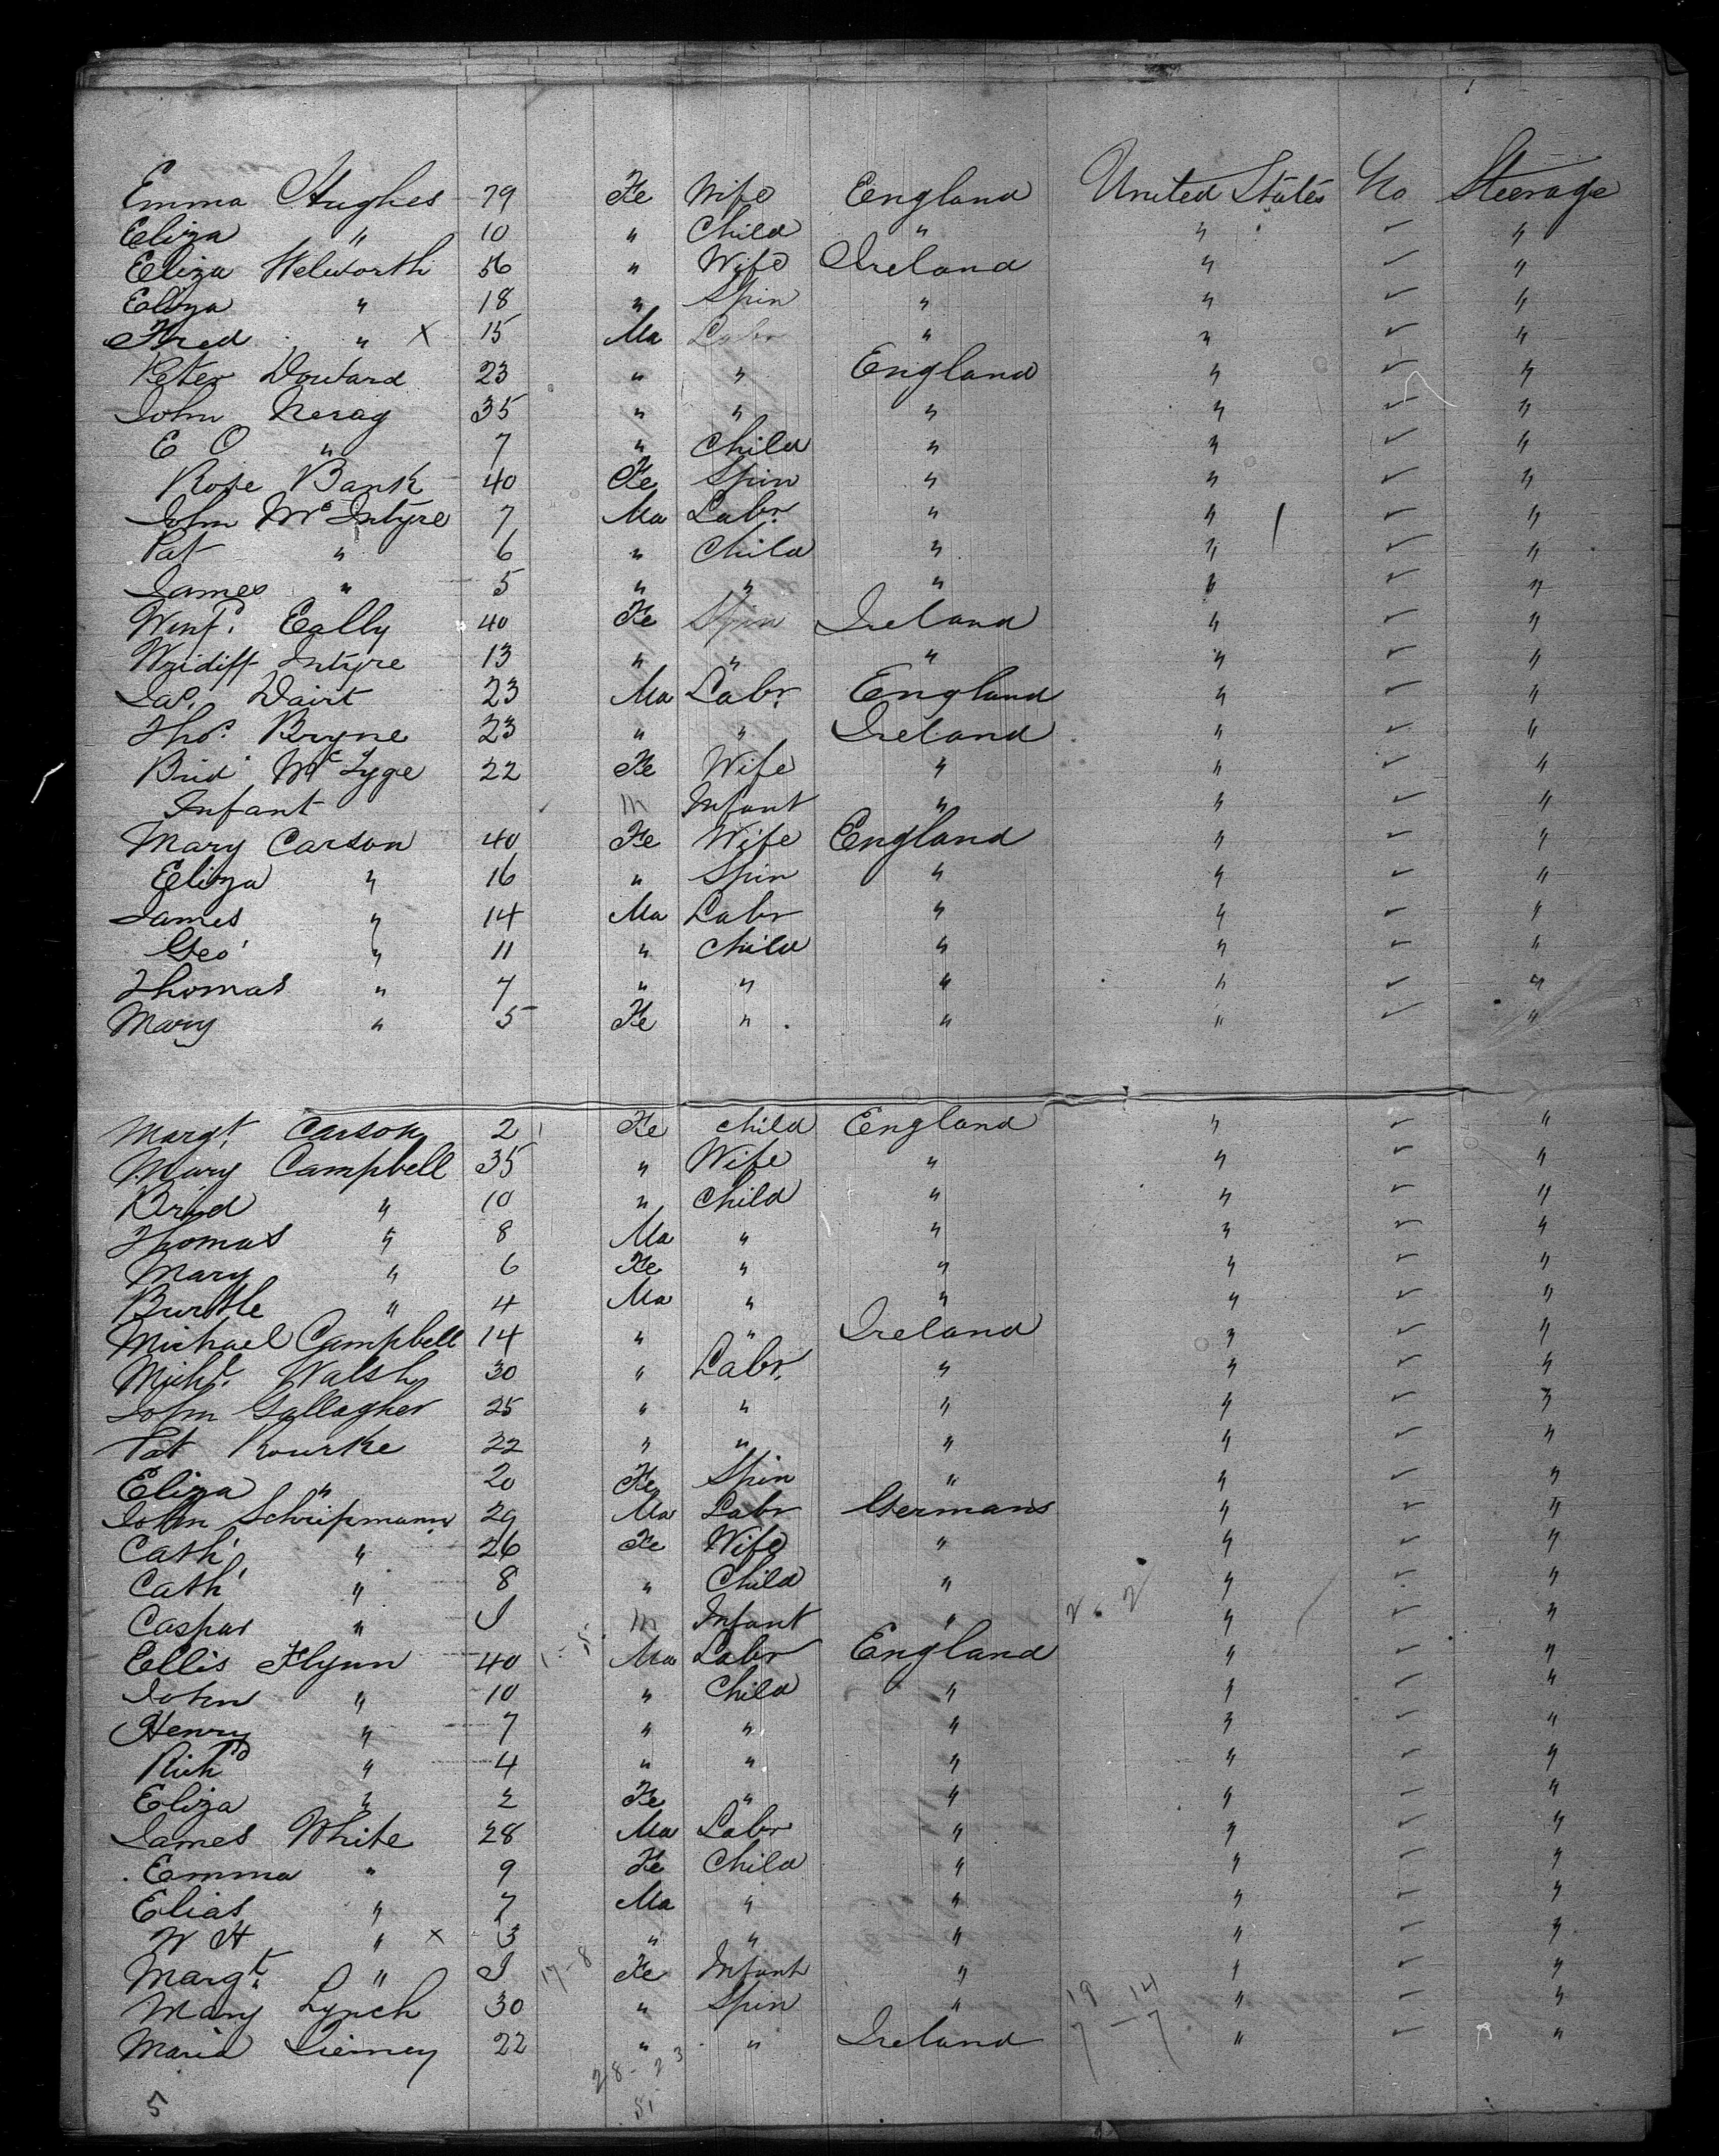 Emma Hughes 79 Fe Wife England United States No Steerage
Eliza " 10 " Child " " ✓ "
Eliza Helworth 56 " Wife Ireland " ✓ "
Eliza " 18 " Spin " " ✓ "
Fred " X 15 Ma Labr " " ✓ "
Peter Doward 23 " " England " ✓ "
John Nerag 35 " " " " ✓ "
E O " 7 " Child " " ✓ "
Rose Bank 40 Fe Spin " " ✓ "
John McIntyre 7 Ma Labr " " ✓ "
Pat " 6 " Child " " ✓ "
James " 5 " " " " ✓ "
Winf. Eally 40 Fe Spin Ireland " ✓ "
Wridiff Intyre 13 " " " " ✓ "
Jas. Dairt 23 Ma Labr. England " ✓ "
Thos. Bryne 23 " " Ireland " ✓ "
Brid McTyge 22 Fe Wife " " ✓ "
Infant m Infant " " ✓ "
Mary Carson 40 Fe Wife England " ✓ "
Eliza " 16 " Spin " " ✓ "
James " 14 Ma Labr " " ✓ "
Geo " 11 " Child " " ✓ "
Thomas " 7 " " " " ✓ "
Mary " 5 Fe " " " ✓ "
Margt. Carson 2 Fe Child England " ✓ "
Mary Campbell 35 " Wife " " ✓ "
Brid " 10 " Child " " ✓ "
Thomas " 8 Ma " " " ✓ "
Mary " 6 Fe " " " ✓ "
Burtle " 4 Ma " " " ✓ "
Michael Campbell 14 " " Ireland " ✓ "
Michl. Walsh 30 " Labr. " " ✓ "
John Gallagher 25 " " " " ✓ "
Pat Rourke 22 " " " " ✓ "
Eliza " 20 Fe Spin " " ✓ "
John Schripmann 29 Ma Labr Germans " ✓ "
Cath " 26 Fe Wife " " ✓ "
Cath " 8 " Child " " ✓ "
Caspar " I m Infant " " ✓ "
Ellis Flynn 40 Ma Labr England " ✓ "
John " 10 " Child " " ✓ "
Henry " 7 " " " " ✓ "
Richd " 4 " " " " ✓ "
Eliza " 2 Fe " " " ✓ "
James White 28 Ma Labr " " ✓ "
Emma " 9 Fe Child " " ✓ "
Elias " 7 Ma " " " ✓ "
W H " X 3 " " " " ✓ "
Margt. " I 17-8 Fe Infant " " ✓ "
Mary Lynch 30 " Spin " 19 - 14 " ✓ "
Maria Tierney 22 " " Ireland 7 - 7 " ✓ "
28-23
5 51